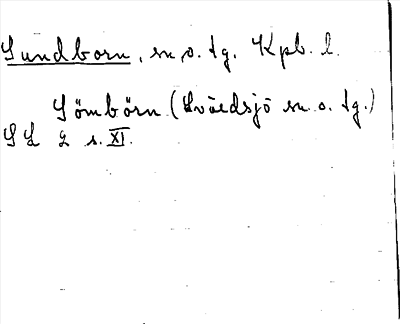 Sundborn, sn o. tg. Kpb. l.
Sömbörn (Svärdsjö sn o. tg.)
SL 2 s. XI.